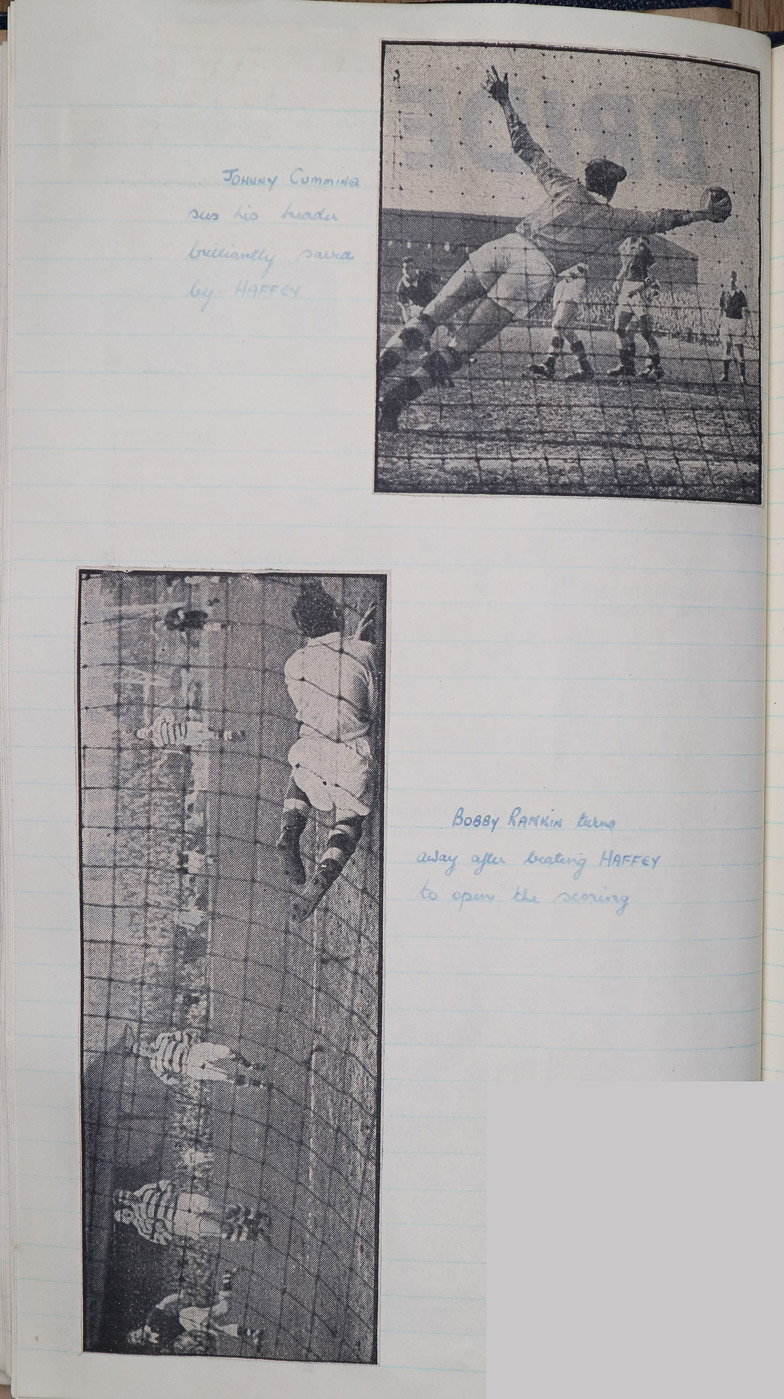 JOHNNY CUMMING
sees his header
brilliantly saved
by HAFFEY
BOBBY RANKIN turns
away after beating HAFFEY
to open the scoring